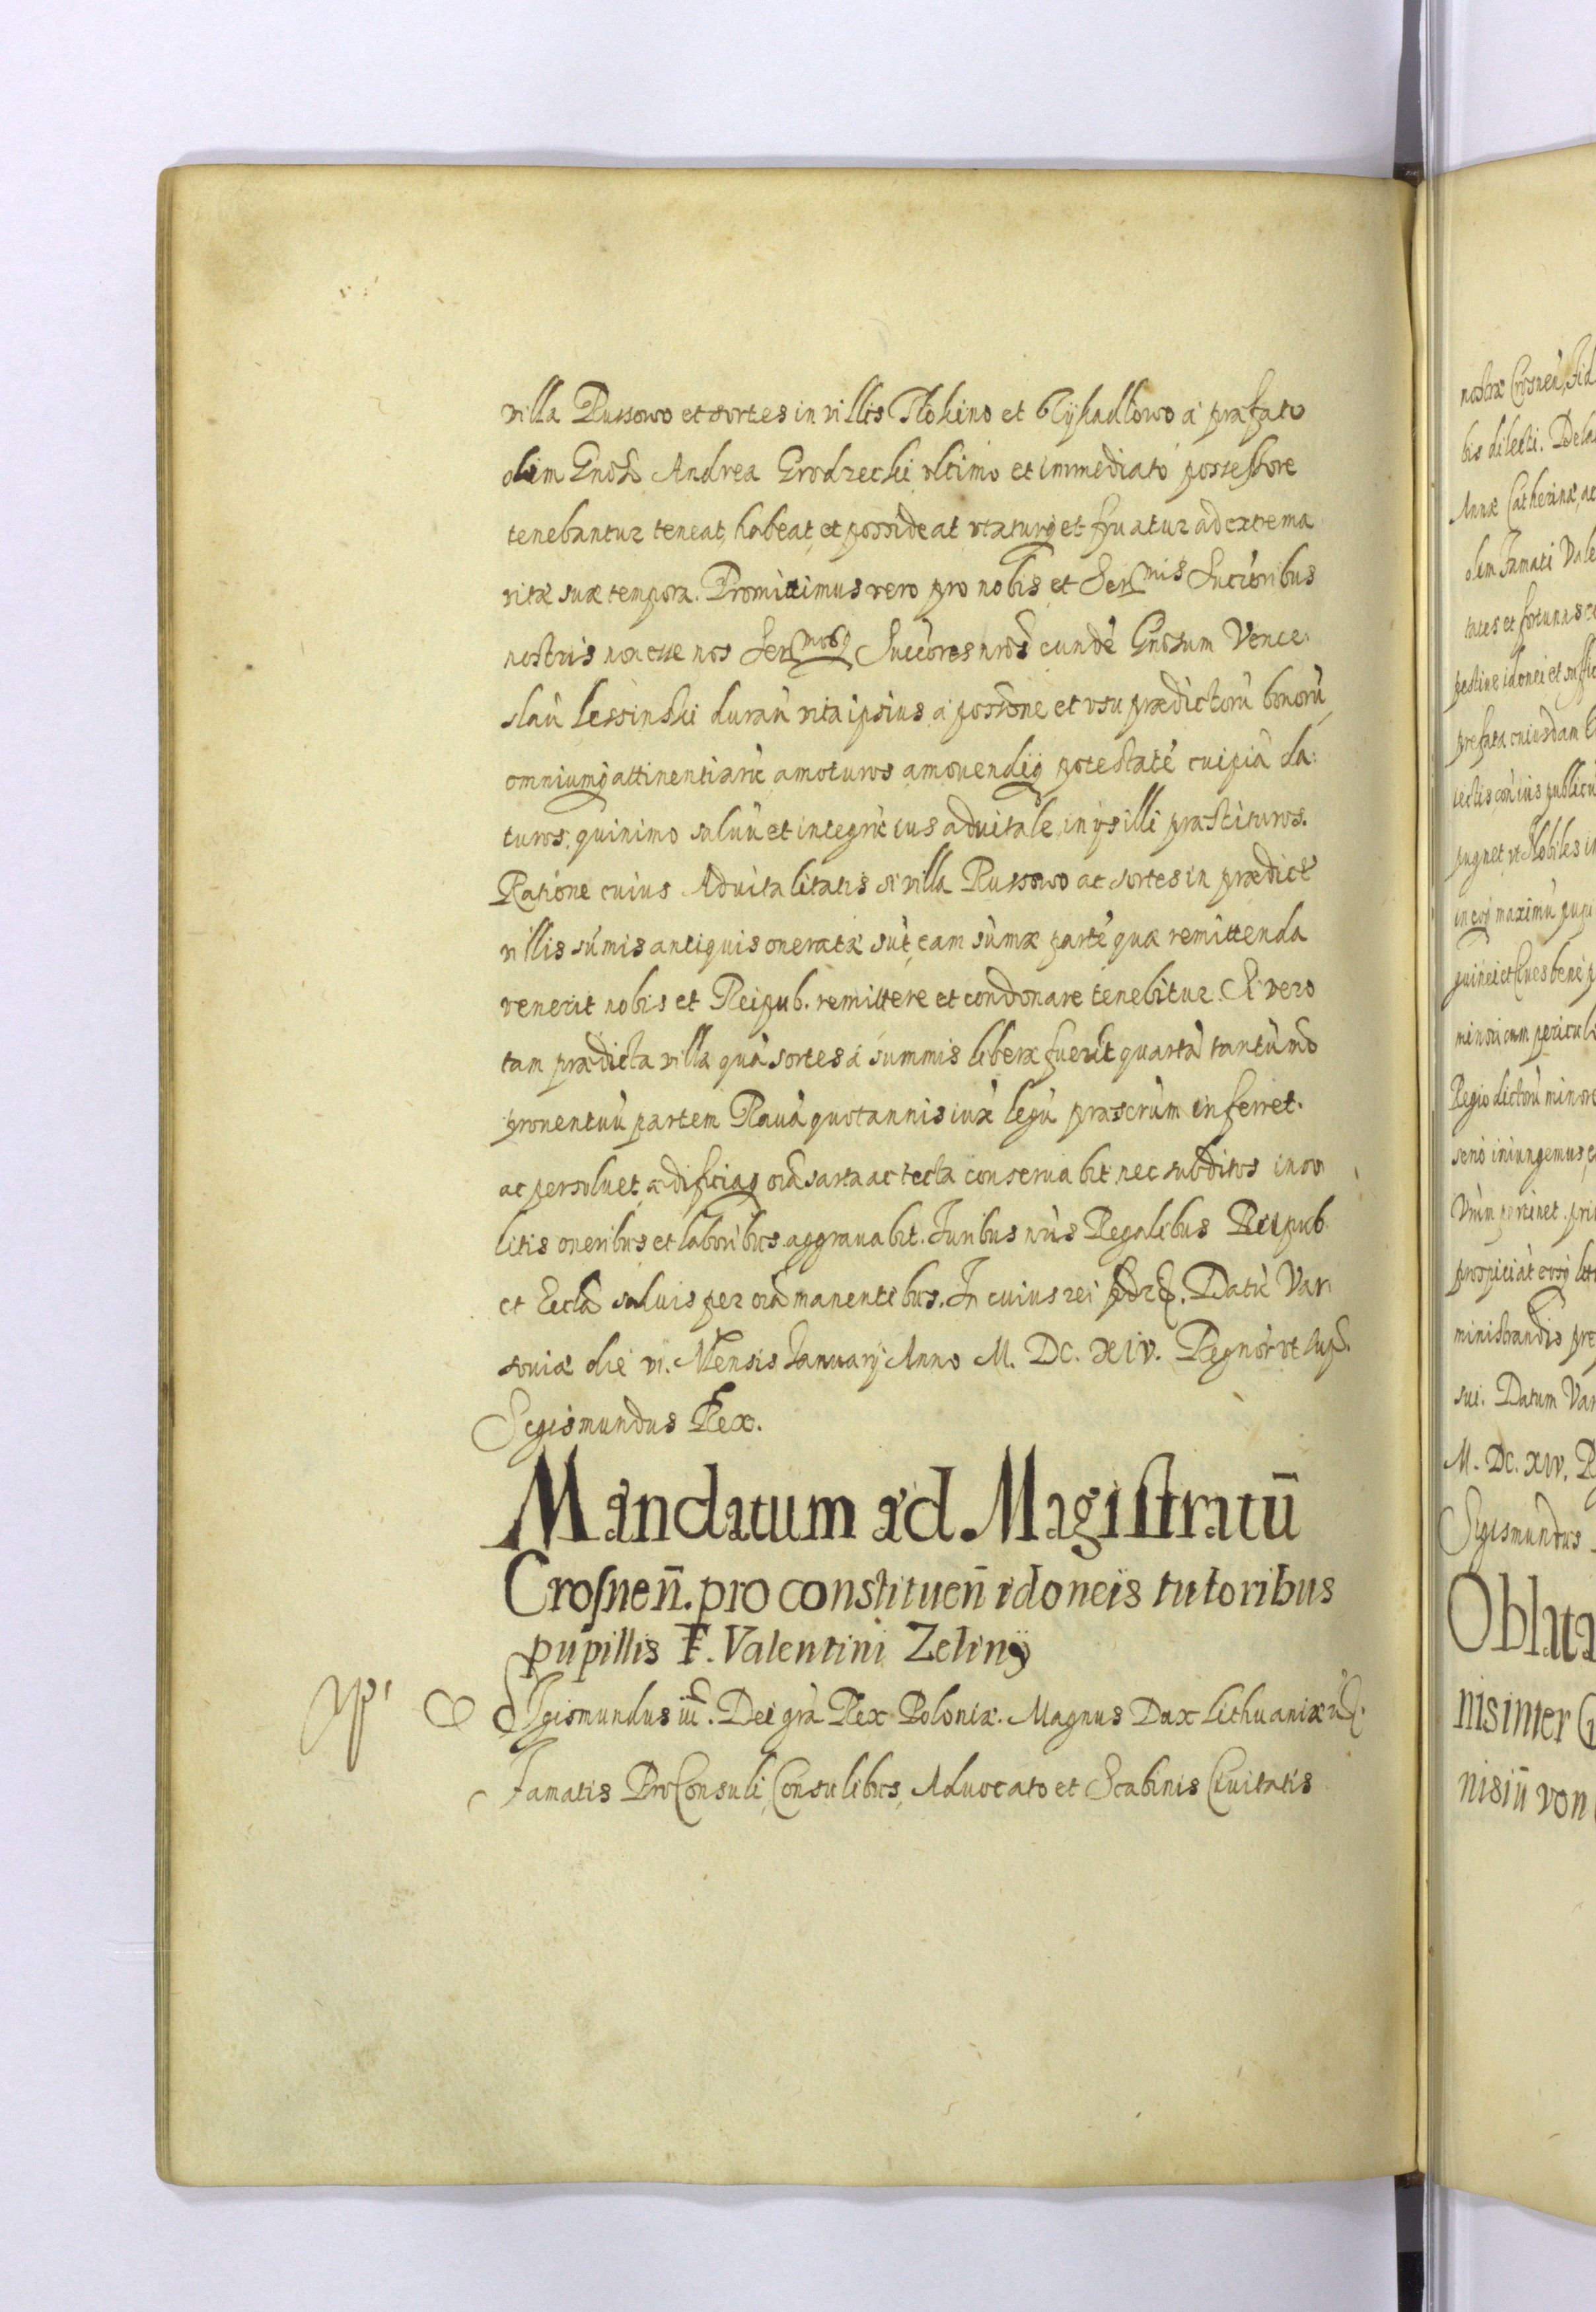 villa Russowo et sortes in villis Tlokino et  à præfato
olim Gnoso Andrea Grodzecki ultimo et immediato possessore
tenebantur teneat, habeat, et possideat utaturq̃ et fruatur ad extrema
vitæ suæ tempora. Promittimus vero pro nobis et Ser:mis Succoribus
nostris non esse nos Ser:mosq̃ Succores nros eundẽ Gnosum Vence
slaũ Lessinski durañ vita ipsius à possone et usu prædictorũ bonorũ
omniumq̃ attinentiarũ amoturos amovendiq̃ potestatẽ cuipiã da:
turos, quinimo salvũ et integrũ ius advitale in ijs illi præstituros.
Ratione cuius Advitalitatis si villa Russowo ac sortes in prædict̃
villis sũmis antiquis oneratæ sũt, eam sũmæ partẽ quæ remittenda
venerit nobis et Reipub. remittere et condonare tenebitur. Si vero
tam prædicta villa quã sortes à summis liberæ fuerĩt quartã tantũmõ
proventuũ partem Ravã quotannis iux̃ legũ præscrũm inferret.
ac persolvet, ædificiaq̃ oia sarta ac tecta conservabit, nec subditos inso
litis oneribus et laboribus aggravabit. Iuribus nris Regalibus Reipub.
et Eccla salvis per oia manentibus. In cuius rei . Datũ Var
soviæ die vi. Mensis Ianuarij Anno M. DC. XIV. Regnor̃ ut sup.
Sigismundus Rex.
Mandatum ad Magistratũ
Crosneñ. pro constitueñ idoneis tutoribus
pupillis F. Valentini Zeliny
Sigismundus iii. Dei grã Rex Poloniæ. Magnus Dux Lithuaniæ
Famatis ProConsuli, Consulibus, Advocato et Scabinis Civitatis
nostræ Crosneñ, fid
bis dilecti. Dela
Annæ Catherinæ, ac
olim Famati Vale
tates et fortunas
pestive idonei et suffic
præfata cuiusdam
tectis, cõ ius publicũ
pugnet, ut Nobiles in
in eoq̃ maximũ
 bene
minori cum pericul
Regio dictorũ minore
serio iniungemus,
Vrũm pertinet. pri
prospiciãt eosq̃
ministrandis præ
sui. Datum Var
M. DC. XIV. R
Sigismundus
Oblata
nis inter
nisiũ von